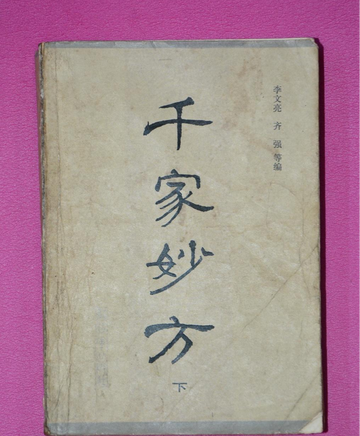 李文亮 齐 强 等编
千家妙方
下